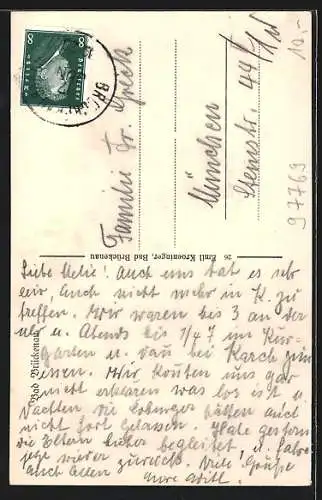 8 Deutsches Reich 8
BRÜCKENAU
Familie Fr. Speck
München
Sternstr. 44/I
10,-
97769
26 Emil Kroeninger, Bad Brückenau
Bad Brückenau
Liebe Melie! Auch uns hat es sehr
leid nicht mehr in K. zu
treffen. Wir waren bis 3 an der
Uhr u. Abends bis 1/4 7 im Kur-
garten u. dann bei Karch zum
essen. Wir konten uns gar
nicht erklären was los ist u.
dachten die Coburger hätten auch
nicht fort gelassen. Habe gestern
die Eltern hieher begleitet u. fahre
jetz wieder zurück. Viele Grüße
auch Allen